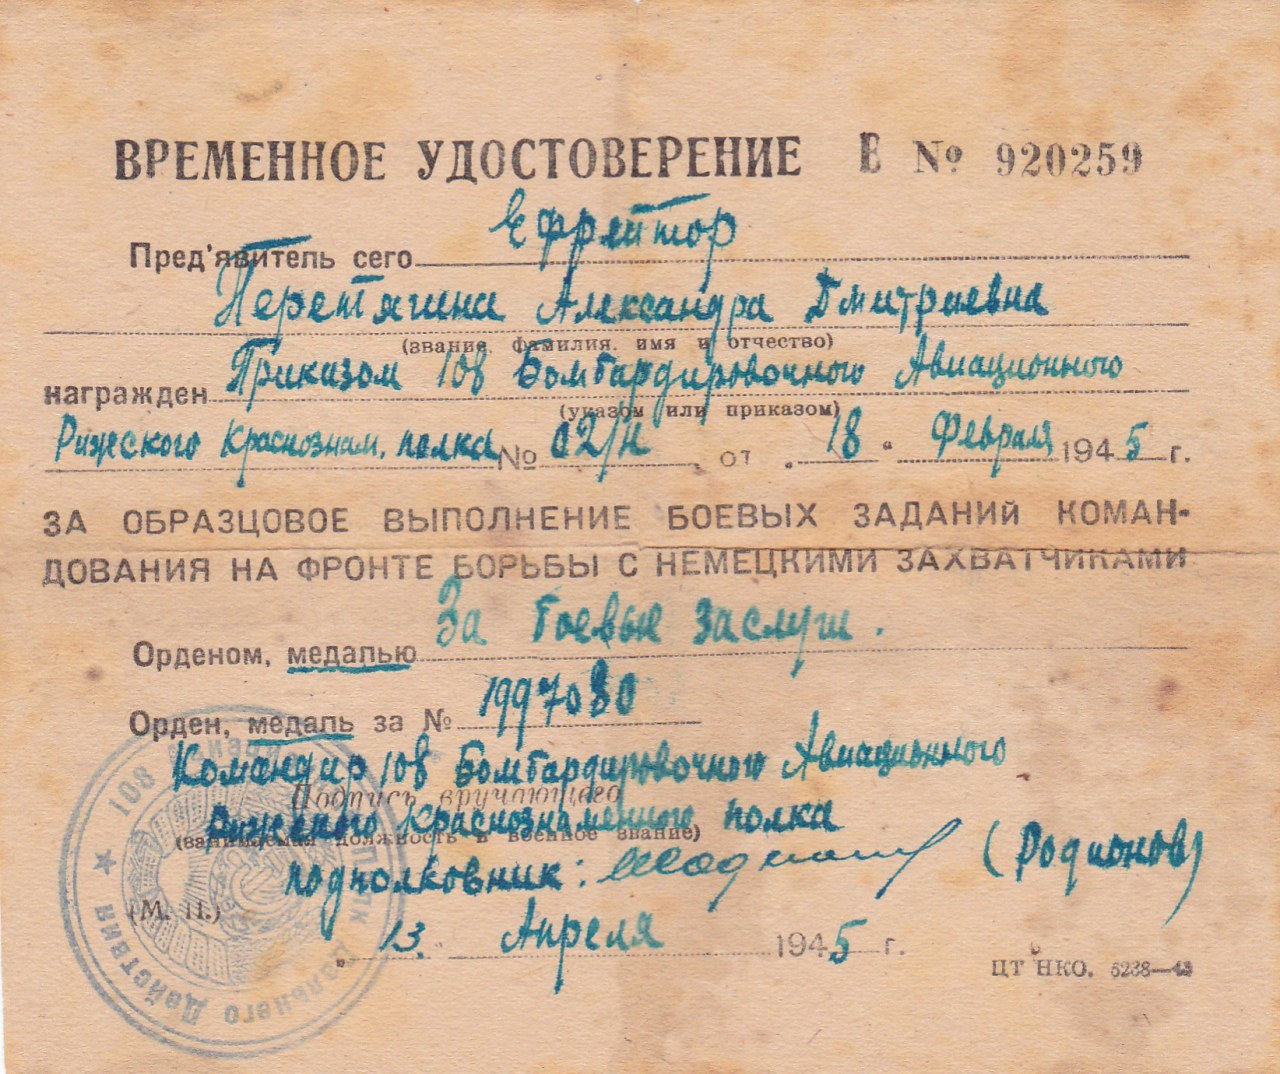 ВРЕМЕННОЕ УДОСТОВЕРЕНИЕ Е № 920259
Пред'явитель сего Ефрейтор
Перетягина Александра Дмитриевна
(звание, фамилия, имя и отчество)
награжден Приказом 108 Бомбардировочного Авиационного
(указом или приказом)
Рижского Краснознам. полка № 02/н от „18“ Февраля 1945 г.
ЗА ОБРАЗЦОВОЕ ВЫПОЛНЕНИЕ БОЕВЫХ ЗАДАНИЙ КОМАН-
ДОВАНИЯ НА ФРОНТЕ БОРЬБЫ С НЕМЕЦКИМИ ЗАХВАТЧИКАМИ
Орденом, медалью За боевые заслуги.
Орден, медаль за № 1997030
Командир 108 Бомбардировочного Авиационного
Подпись вручающего
Рижского Краснознаменного полка
(занимаемая должность и военное звание)
подполковник: (Родионов)
(М. П.)
„13.“ Апреля 1945 г.
ЦТ НКО. 6238—43
108 Полк Дальнего Действия